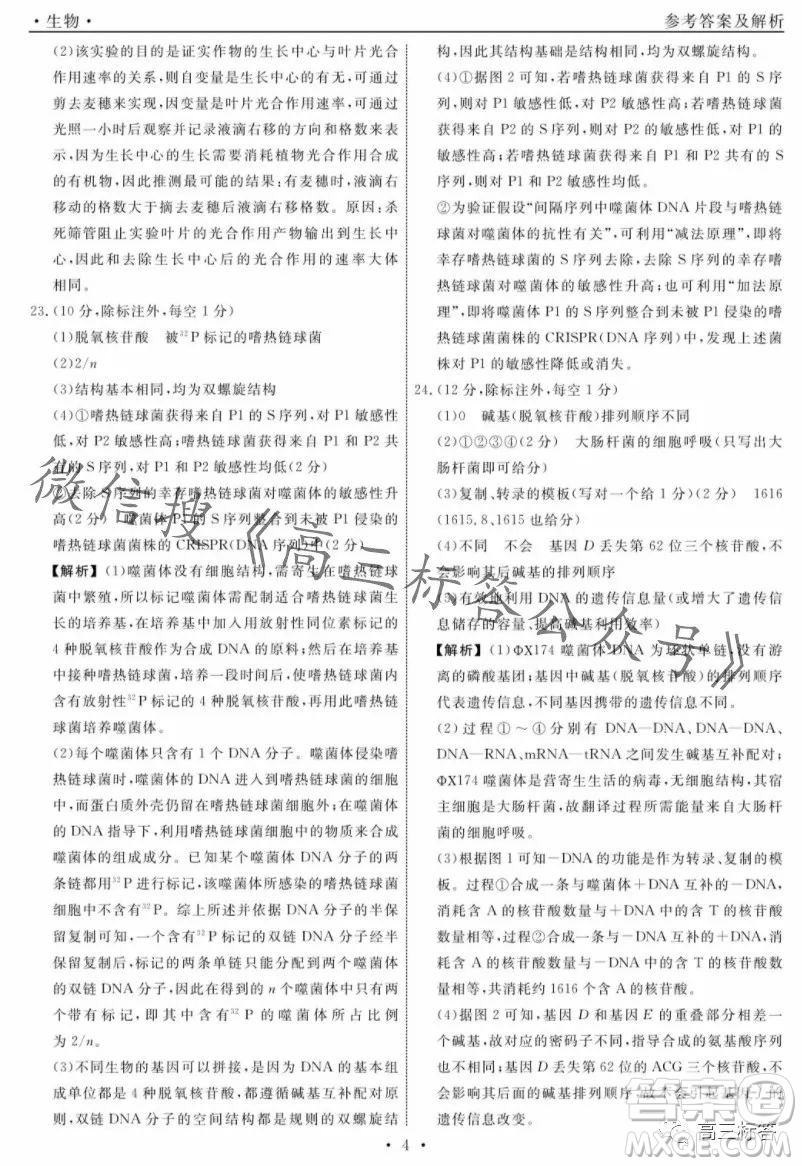 · 生物 ·
参考答案及解析
(2)该实验的目的是证实作物的生长中心与叶片光合
作用速率的关系，则自变量是生长中心的有无，可通过
剪去麦穗来实现，因变量是叶片光合作用速率，可通过
光照一小时后观察并记录液滴右移的方向和格数来表
示，因为生长中心的生长需要消耗植物光合作用合成
的有机物，因此推测最可能的结果：有麦穗时，液滴右
移动的格数大于摘去麦穗后液滴右移的格数。原因：杀
死筛管阻止实验叶片的光合作用产物输出到生长中
心，和去除生长中心后的光合作用的速率大体
相同。
23.(10 分，除标注外，每空 1 分)
(1)脱氧核苷酸　被³²P 标记的嗜热链球菌
(2)2/n
(3)结构基本相同，均为双螺旋结构
(4)①嗜热链球菌获得来自 P1 的 S 序列，对 P1 敏感性
低，对 P2 敏感性高；嗜热链球菌获得来自 P1 和 P2 共
有的 S 序列，对噬菌体敏感性均低(2 分)
②去除 S 序列的幸存嗜热链球菌对噬菌体的敏感性升
高(2 分)　噬菌体 P1 的 S 序列整合到未被 P1 侵染的
嗜热链球菌菌株的 CRISPR(DNA 序列)中(2 分)
【解析】(1)噬菌体没有细胞结构，需寄生在嗜热链球菌
中繁殖，所以标记噬菌体需配制适合于嗜热链球菌生
长的培养基，在培养基中加入用放射性同位素标记的
4 种脱氧核苷酸作为合成 DNA 的原料；然后在培养基
中接种嗜热链球菌，培养一段时间后，使嗜热链球菌
内含有放射性³²P 标记的 4 种脱氧核苷酸，再用此嗜热链
球菌培养噬菌体。
(2)每个噬菌体只含有 1 个 DNA 分子。噬菌体侵染嗜
热链球菌时，噬菌体的 DNA 进入到嗜热链球菌的细胞
中，而蛋白质外壳仍留在嗜热链球菌细胞外；在噬菌体
的 DNA 指导下，利用嗜热链球菌细胞中的物质来合成
噬菌体的组成成分。已知某噬菌体 DNA 分子的两
条链都用³²P 进行标记，该噬菌体所感染的嗜热链球菌
细胞中不含有³²P。综上所述并根据 DNA 分子的半保
留复制可知，1 个含有³²P 标记的双链 DNA 分子经半
保留复制后，标记的两条单链只能分配到两个噬菌体
的双链 DNA 分子中，因此在得到的 n 个噬菌体中只有两
个带有标记，即其中含有³²P 的噬菌体所占比例
为 2/n。
(3)不同生物的基因可以拼接，是因为基因的基本组
成单位都是 4 种脱氧核苷酸，都遵循碱基互补配对原
则，双链 DNA 分子的空间结构是规则的双螺旋结
构，因此其结构基础是结构基本相同，均为双螺旋结构。
(4)①据图 2 可知，若嗜热链球菌获得来自 P1 的 S 序
列，则对 P1 敏感性低，对 P2 敏感性高；若嗜热链球菌
获得来自 P2 的 S 序列，则对 P2 的敏感性低，对 P1 的敏
感性高；若嗜热链球菌获得来自 P1 和 P2 共有的 S 序
列，则对 P1、P2 的敏感性均低。
②为验证假设“间隔序列中噬菌体 DNA 片段与嗜热链
球菌对噬菌体的抗性有关”，可利用“减法原理”，即将
幸存嗜热链球菌的 S 序列去除，发现幸存的嗜热链球
菌对噬菌体的敏感性升高；也可利用“加法原理”，
即将噬菌体 P1 的 S 序列整合到未被 P1 侵染的嗜热链
球菌菌株的 CRISPR(DNA 序列)中，发现上述菌
株对 P1 的敏感性降低或消失。
24.(12 分，除标注外，每空 1 分)
(1)0　碱基(脱氧核苷酸)排列顺序不同
(2)①②③④(2 分)　大肠杆菌的细胞呼吸(只写出大
肠杆菌即可给分)
(3)复制、转录的模板(写对一个给 1 分)(2 分)　1616
(1615.8、1615 也给分)
(4)不同　不会　基因 D 丢失第 62 位三个核苷酸，不
会影响其后碱基的排列顺序
(5)有效地利用 DNA 的遗传信息量(或增大了遗传信
息储存的容量、提高碱基利用效率)
【解析】(1)ΦX174 噬菌体 DNA 为环状单链，没有游
离的磷酸基团；基因中碱基(脱氧核苷酸)的排列顺序
代表遗传信息，不同基因携带的遗传信息不同。
(2)过程①～④分别有 DNA—DNA、DNA—DNA、
DNA—RNA、mRNA—tRNA 之间发生碱基互补配对；
ΦX174 噬菌体是营寄生生活的病毒，无细胞结构，其宿
主细胞是大肠杆菌，故翻译过程所需能量来自大肠杆
菌的细胞呼吸。
(3)根据图 1 可知－DNA 的作用为转录、复制的模板。
过程①合成一条与噬菌体＋DNA 互补的－DNA，
消耗含 A 的核苷酸数量与＋DNA 中含 T 的核苷酸
数量相等，过程②合成一条与－DNA 互补的＋DNA，
消耗含 A 的核苷酸数量与＋DNA 中含 A 的核苷酸数
量相等，共消耗约 1616 个含 A 的核苷酸。
(4)据图 2 可知，基因 D 和基因 E 的重叠部分相差一
个碱基，故对应的密码子不同，指导合成的氨基酸的
序列也不同。基因 D 丢失第 62 位的 ACG 三个核苷酸，不
会影响其后的碱基排列顺序，故不会引起基因 E 的
遗传信息改变。
微信搜《高三标答公众号》
· 4 ·
高三标答
答案圈
MXQE.COM